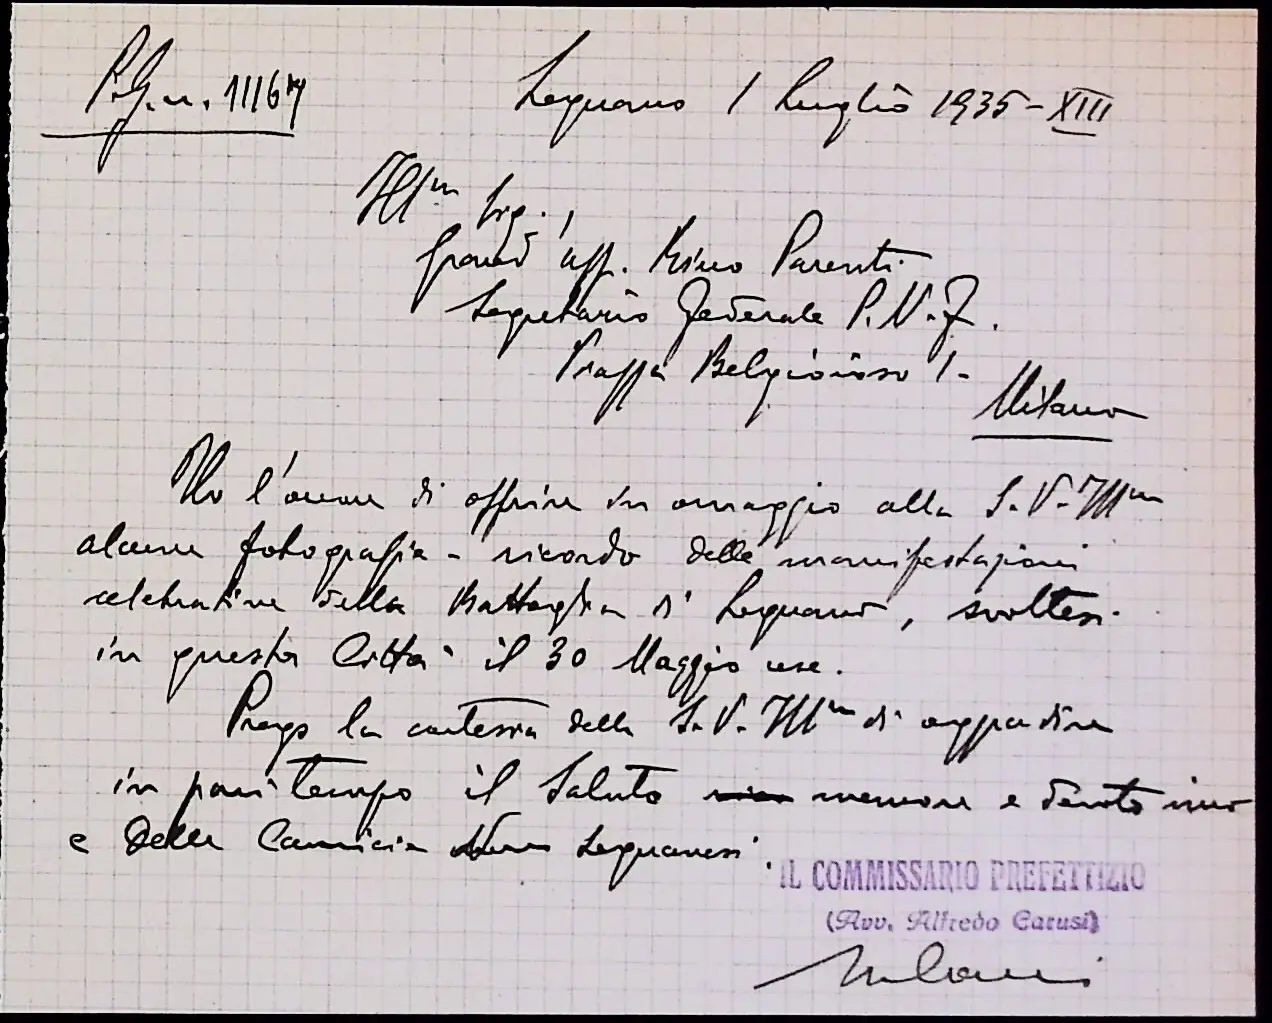 P.G.n. 11167
Legnano 1 Luglio 1935-XIII
Ill.mo Sig.,
Grand'uff. Rino Parenti
Segretario Federale P.N.F.
Piazza Belgioioso 1-
Milano
Ho l'onore di offrire in omaggio alla S.V. Ill.ma
alcune fotografie - ricordo delle manifestazioni
celebrative della Battaglia di Legnano, svoltesi
in questa Città il 30 Maggio u.s.
Prego la cortesia della S.V. Ill.ma di aggradire
in pari tempo il Saluto memore e devoto mio
e delle Camicie Nere Legnanesi.
IL COMMISSARIO PREFETTIZIO
(Avv. Alfredo Carusi)